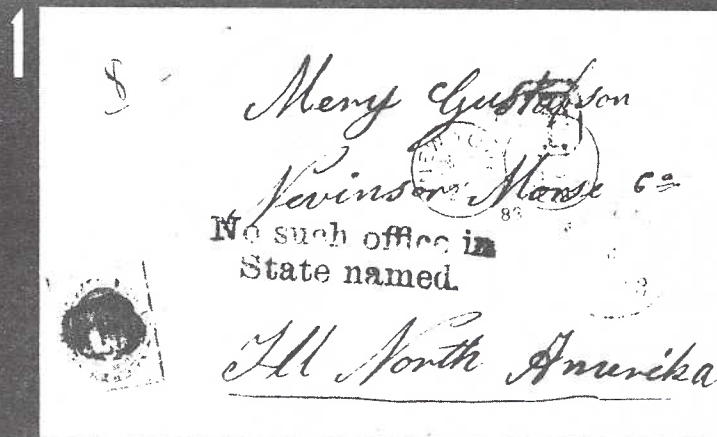 1
8
Mery Gustafson
Nevinson Morse Co
83
No such office in
State named.
Ill North Amerika